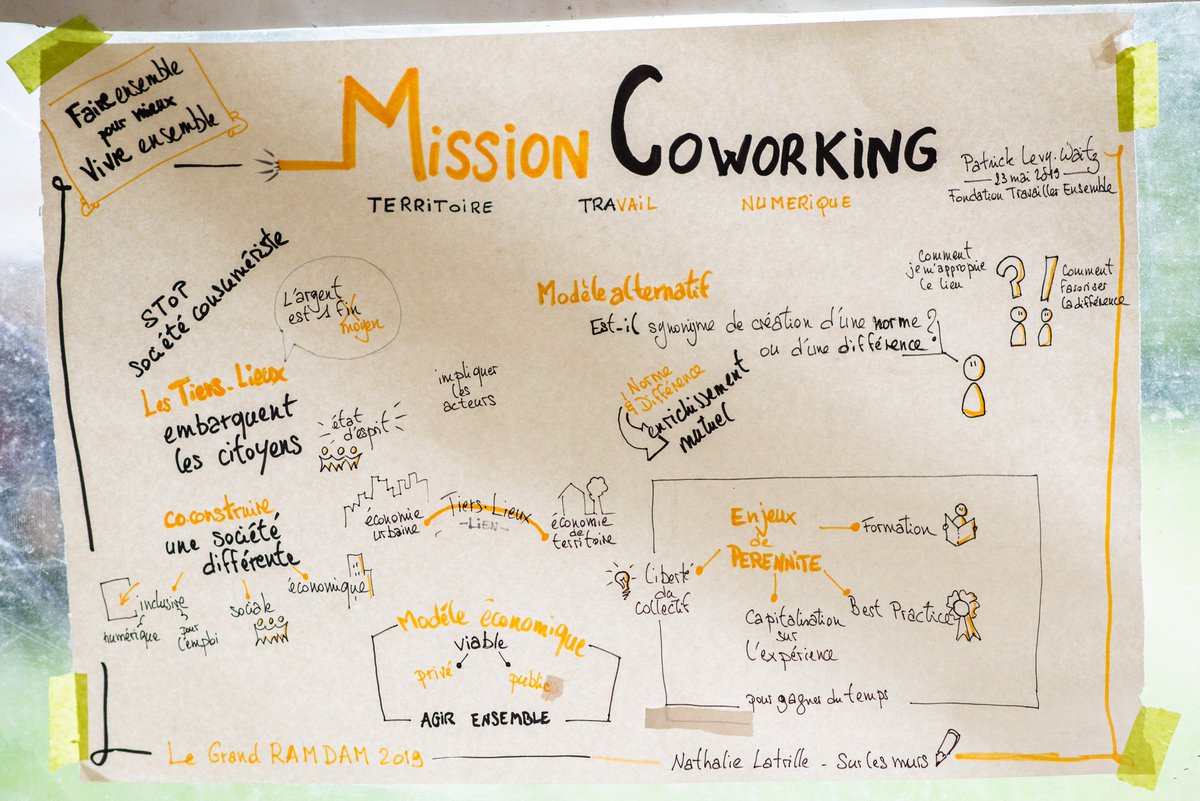 Faire ensemble
pour mieux
Vivre ensemble
MISSION COWORKING
TERRITOIRE TRAVAIL NUMERIQUE
Patrick Levy-Waitz
23 mai 2019
Fondation Travailler Ensemble
STOP
société consumériste
L'argent
est 1 fin
moyen
Les Tiers-Lieux
embarquent
les citoyens
état
d'esprit
impliquer
les
acteurs
Modèle alternatif
Est-il synonyme de création d'une norme ?
ou d'une différence
Comment
je m'approprie
le lien
? !
Comment
favoriser
la différence
1 Norme
& Différence
enrichissement
mutuel
co.construire
une société
différente
inclusive
numérique
pour
l'emploi
sociale
économique
économie
urbaine
Tiers-Lieux
- LIEN -
économie
de
territoire
Modèle économique
viable
privé
public
AGIR ENSEMBLE
Enjeux
de
PERENNITE
Formation
Liberté
du
collectif
Capitalisation
sur
l'expérience
Best Practice
pour gagner du temps
Le Grand RAMDAM 2019
Nathalie Latrille - Sur les murs